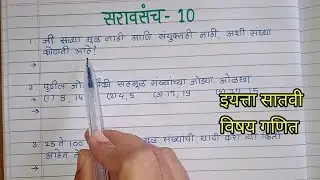 सरावसंच - 10
1. जी संख्या मूळ नाही आणि संयुक्तही नाही, अशी संख्या
कोणती आहे?
→
2. पुढील जो पैकी सहमूळ संख्यांच्या जोड्या ओळखा
→ (1) 8, 14 (2) 4, 5 (3) 17, 19
→
3. 25 ते 100 मूळ संख्यांची यादी करा. त्या किती
आहेत
इयत्ता सातवी
विषय गणित